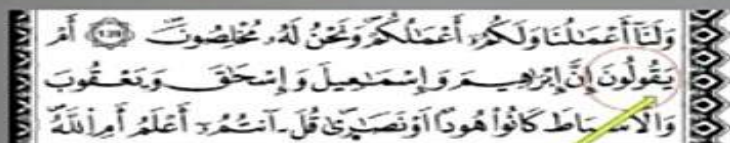 وَلَنَآ أَعْمَٰلُنَا وَلَكُمُۥٓ أَعْمَٰلُكُمْ وَنَحْنُ لَهُۥ مُخْلِصُونَ أَمْ
يَقُولُونَ إِنَّ إِبْرَٰهِيمَ وَإِسْمَٰعِيلَ وَإِسْحَٰقَ وَيَعْقُوبَ
وَالَاسْبَاطَ كَانُواْ هُودًا اَوْ نَصَٰرَىٰ قُلَ ـآنتُمُۥٓ أَعْلَمُ أَمِ اِللَّهُ